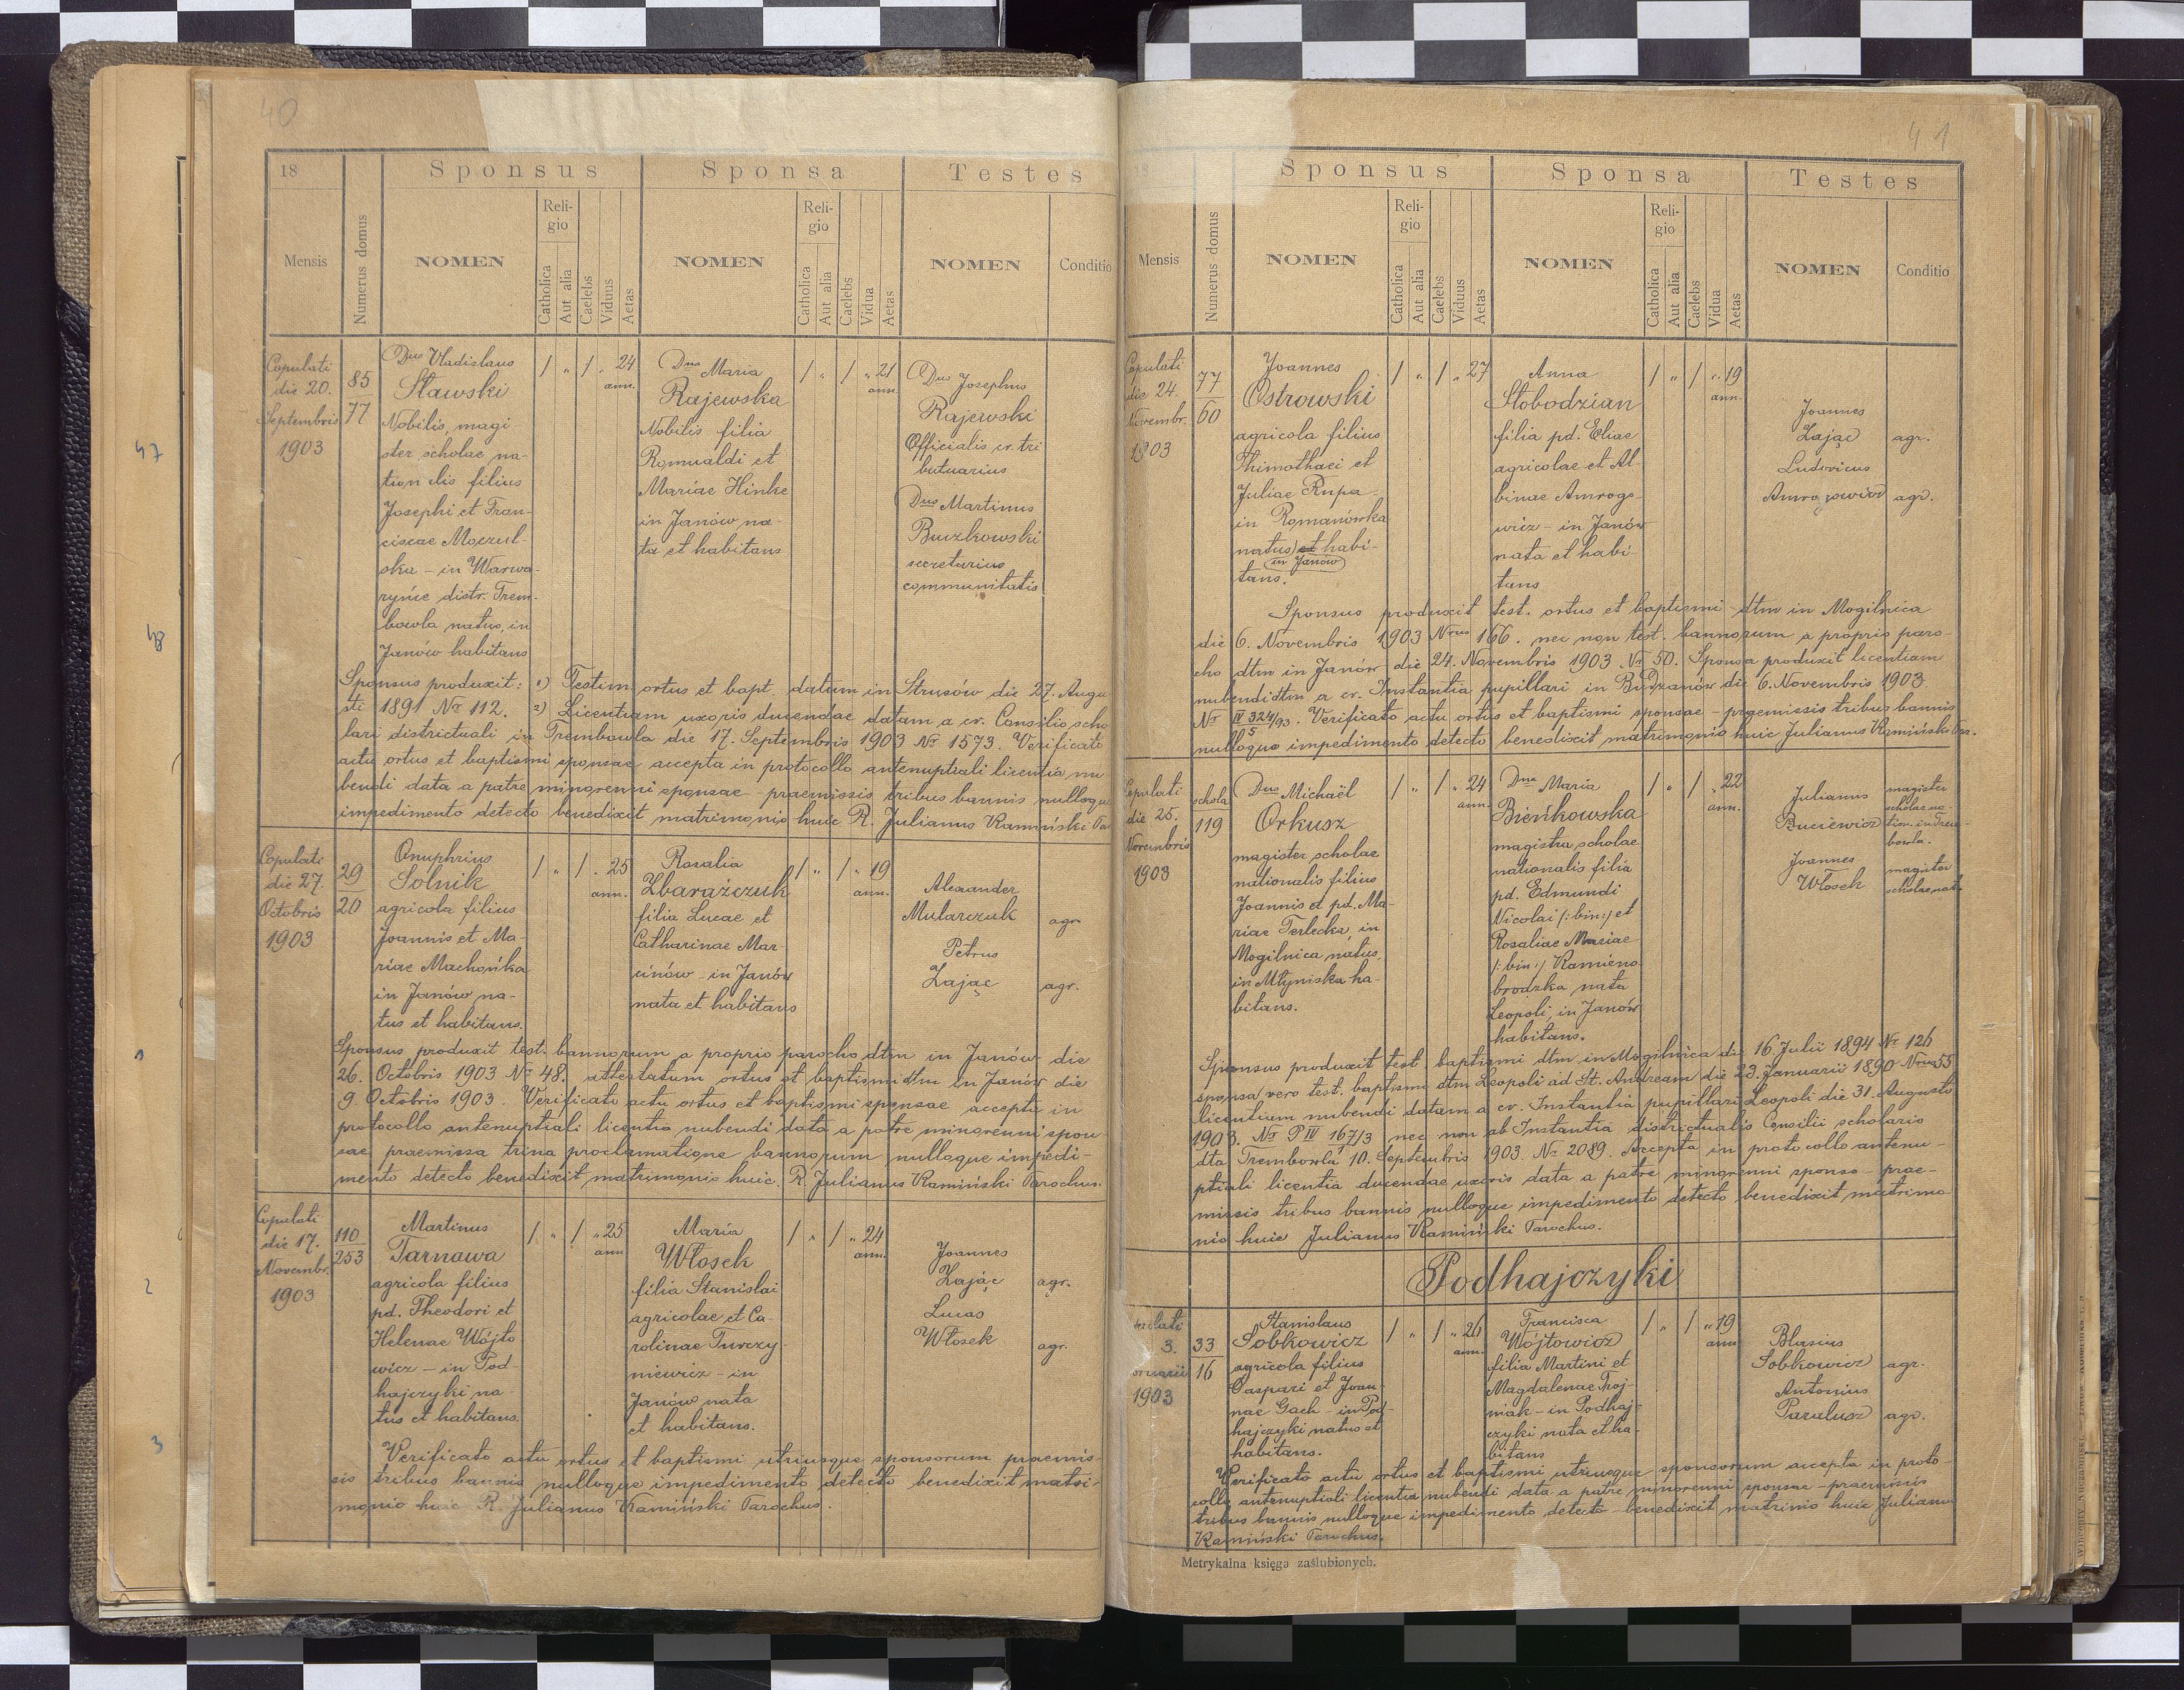 40
18
Sponsus
Sponsa
Testes
Mensis
Numerus domus
NOMEN
Reli-
gio
Catholica
Aut alia
Caelebs
Viduus
Aetas
NOMEN
Reli-
gio
Catholica
Aut alia
Caelebs
Vidua
Aetas
NOMEN
Conditio
Copulati
die 20.
Septembris
1903
85
77
Dnus Vladislaus
Sławski
Nobilis, magi-
ster scholae na-
tionalis filius
Josephi et Fran-
ciscae Moczul-
ska – in Warwa-
ryńce distr. Trem-
bowla natus, in
Janów habitans
/ „ / „ 24
ann.
Dna Maria
Rajewska
Nobilis filia
Romualdi et
Mariae Hinke
in Janów na-
ta et habitans
/ „ / „ 21
ann.
Dnus Josephus
Rajewski
Officialis cr. tri
butuarius
Dnus Martinus
Buczkowski
secretarius
communitatis
Sponsus produxit: 1) Testim. ortus et bapt. datum in Strusów die 27. Augu
sti 1891 Nr 112. 2) Licentiam uxoris ducendae datam a cr. Consilio scho
lari districtuali in Trembowla die 17. Septembris 1903 Nr 1573. Verificato
actu ortus et baptismi sponsae accepta in protocollo antenuptiali licentia nu
bendi data a patre minorenni sponsae – praemissis tribus bannis nulloque
impedimento detecto benedixit matrimonio huic R. Julianus Kamiński Par
Copulati
die 27.
Octobris
1903
29
20
Onuphrius
Solnik
agricola filius
Joannis et Ma-
riae Machońka
in Janów na-
tus et habitans.
/ „ / „ 25
ann.
Rosalia
Zbarażczuk
filia Lucae et
Catharinae Mar-
cinów – in Janów
nata et habitans
/ „ / „ 19
ann.
Alexander
Mularczuk agr
Petrus
Zając agr.
Sponsus produxit test. bannorum a proprio parocho dtm in Janów die
26. Octobris 1903 Nr 48. attestatum ortus et baptismi dtm in Janów die
9. Octobris 1903. Verificato actu ortus et baptismi sponsae accepta in
protocollo antenuptiali licentia nubendi data a patre minorenni spon
sae praemissa trina proclamatione bannorum nulloque impedi-
mento detecto benedixit matrimonio huic. R. Julianus Kamiński Parochus.
Copulati
die 17.
Novembr.
1903
110
253
Martinus
Tarnawa
agricola filius
pd. Theodori et
Helenae Wójto
wicz – in Pod-
hajczyki na-
tus et habitans.
/ „ / „ 25
ann
Maria
Włosek
filia Stanislai
agricolae et Ca-
rolinae Turczy-
niewicz – in
Janów nata
et habitans.
/ „ / „ 24
ann.
Joannes
Zając agr.
Lucas
Włosek agr.
Verificato actu ortus et baptismi utriusque sponsorum praemis-
sis tribus bannis nulloque impedimento detecto benedixit matri-
monio huic R. Julianus Kamiński Parochus.
47
48
1
2
3
41
18
Sponsus
Sponsa
Testes
Mensis
Numerus domus
NOMEN
Reli-
gio
Catholica
Aut alia
Caelebs
Viduus
Aetas
NOMEN
Reli-
gio
Catholica
Aut alia
Caelebs
Vidua
Aetas
NOMEN
Conditio
Copulati
die 24.
Novembr.
1903
77
60
Joannes
Ostrowski
agricola filius
Thimothaei et
Juliae Rupa-
in Romanówka
natus et habi-
in Janów
tans.
/ „ / „ 27
Anna
Słobodzian
filia pd. Eliae
agricolae et Al-
binae Amrogo-
wicz – in Janów
nata et habi-
tans
/ „ / „ 19
ann.
Joannes
Zając agr.
Ludovicus
Amrogowicz agr.
Sponsus produxit test. ortus et baptismi dtm in Mogilnica
die 6. Novembris 1903 Nrus 166. nec non test. bannorum a proprio paro-
cho dtm in Janów die 24. Novembris 1903 Nr 50. Sponsa produxit licentiam
nubendi dtm a cr. Instantia pupillari in Budzanów die 6. Novembris 1903
Nr IV 324/93. Verificato actu ortus et baptismi sponsae – praemissis tribus bannis
5
nulloque impedimento detecto benedixit matrimonio huic Julianus Kamiński Par.
Copulati
die 25.
Novembris
1903
schola
119
Dnus Michaël
Orkusz
magister scholae
nationalis filius
Joannis et pd. Ma-
riae Terlecka, in
Mogilnica natus,
in Młyniska ha-
bitans.
/ „ / „ 24
ann.
Dna Maria
Bieńkowska
magistra scholae
nationalis filia
pd. Edmundi
Nicolai /:bin:/ et
Rosaliae Mariae
/:bin:/ Kamieno
brodzka nata
Leopoli, in Janów
habitans.
/ „ / „ 22
ann.
Julianus
Buciewicz
magister
scholae na-
tion. in Trem-
bowla.
Joannes
Włosek
magister
scholae nat.
Sponsus produxit test baptismi dtm in Mogilnica die 16 Julii 1894 Nr 126
sponsa vero test. baptismi dtm Leopoli ad St. Andream die 23. Januarii 1890 Nrus 55
licentiam nubendi datam a cr. Instantia pupillari Leopoli die 31. Augusto
1903. Nr P IV 167/3 nec non ab Instantia districtualis Consilii scholario
1
dta Trembowla 10. Septembris 1903. Nr 2089. Accepta in protocollo antenu-
ptiali licentia ducendae uxoris data a patre minorenni sponso – prae-
missis tribus bannis nulloque impedimento detecto benedixit matrimo
nio huic Julianus Kamiński Parochus.
Podhajczyki
3.
1903
33
16
Stanislaus
Sobkowicz
agricola filius
Caspari et Joan-
nae Gach – in Pod-
hajczyki natus et
habitans.
/ „ / „ 26
ann.
Francisca
Wójtowicz
filia Martini et
Magdalenae Troj-
niak – in Podhaj-
czyki nata et ha-
bitans
/ „ / „ 19
ann
Blasius
Sobkowicz agr.
Antonius
Parulusz agr.
Verificato actu ortus et baptismi utriusque sponsorum accepta in proto-
collo antenuptiali licentia nubendi data a patre minorenni sponsae – praemissis
tribus bannis nulloque impedimento detecto – benedixit matrimio huic Julianus
Kamiński Parochus.
Metrykalna księga zaślubionych.